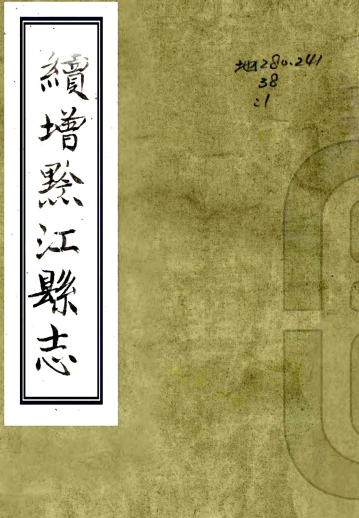 續增黔江縣志
地280.241
38
:1